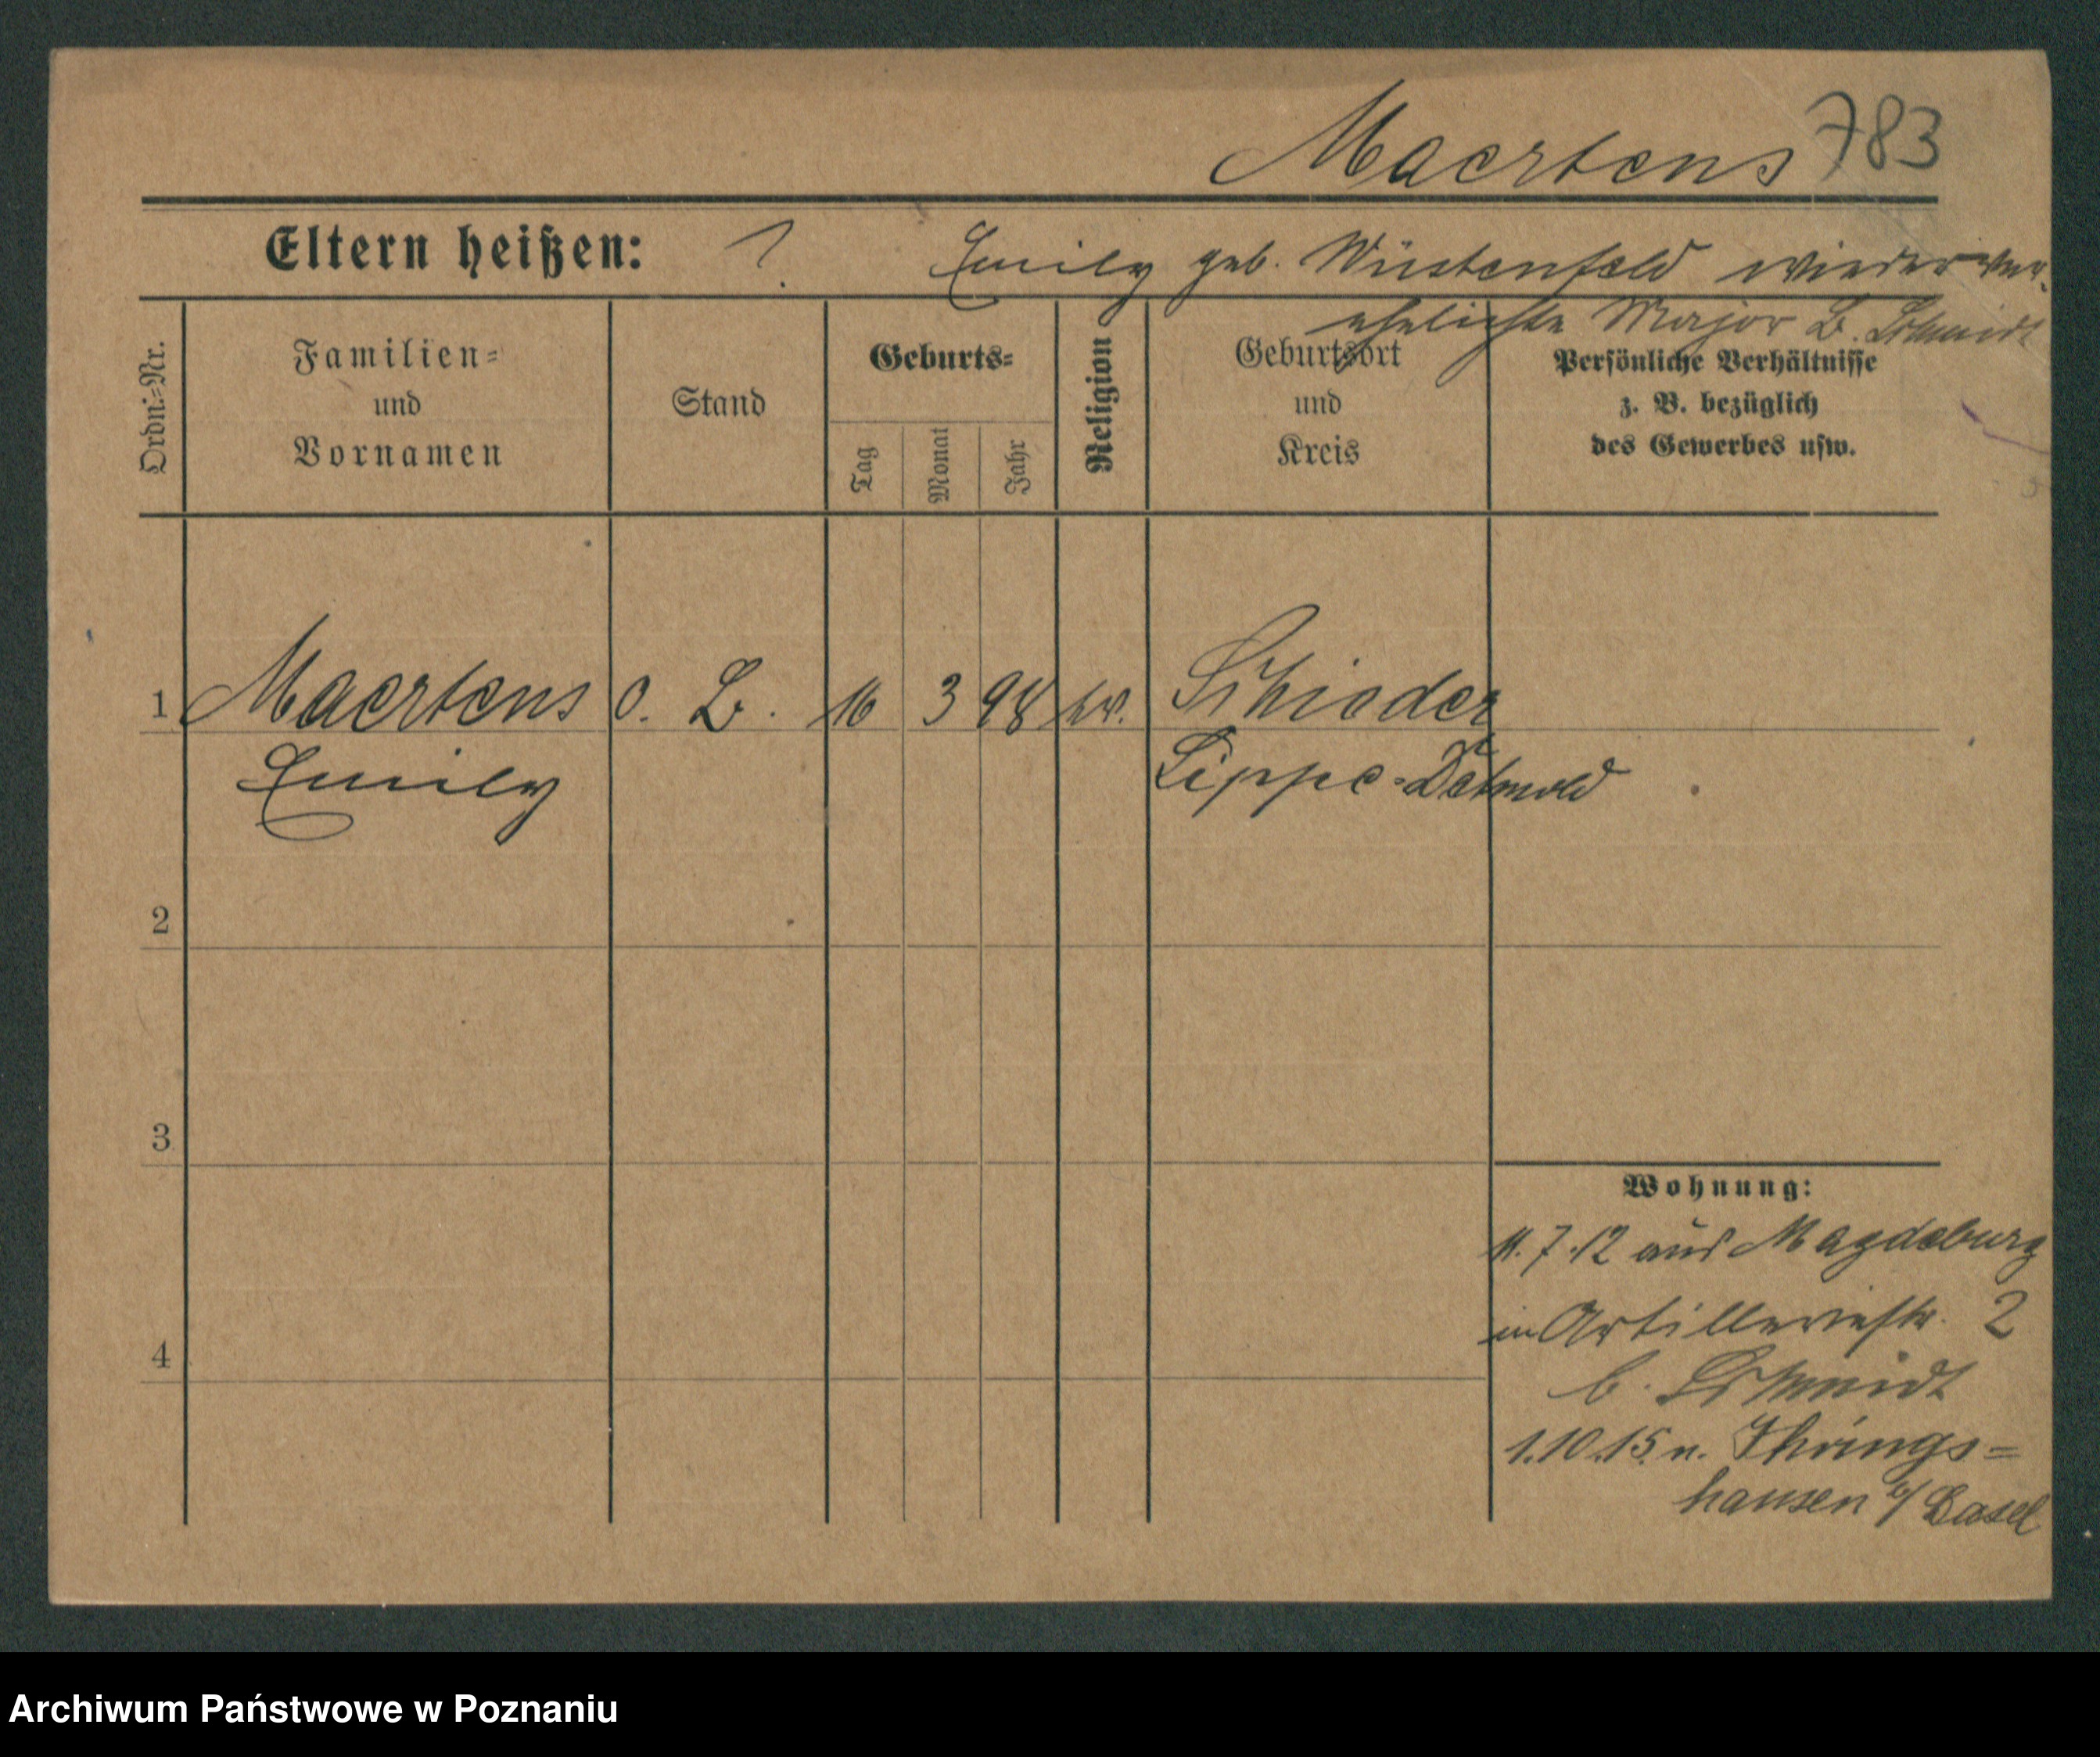 Maertens 783
Eltern heißen: ? Emily geb. Wüstenfeld wiederver-
ehelichte Major B. Schmidt
Ordn.=Nr.
Familien=
und
Vornamen
Stand
Geburts=
Tag
Monat
Jahr
Religion
Geburtsort
und
Kreis
Persönliche Verhältnisse
z. B. bezüglich
des Gewerbes usw.
1 Maertens o. B. 16 3 98 ev. Schieder
Emily Lippe-Detmold
2
3
4
Wohnung:
11.7.12 aus Magdeburg
in Artilleriestr. 2
b. Schmidt
1.10.15. n. Ihrings=
hausen b/ Casel
Archiwum Państwowe w Poznaniu